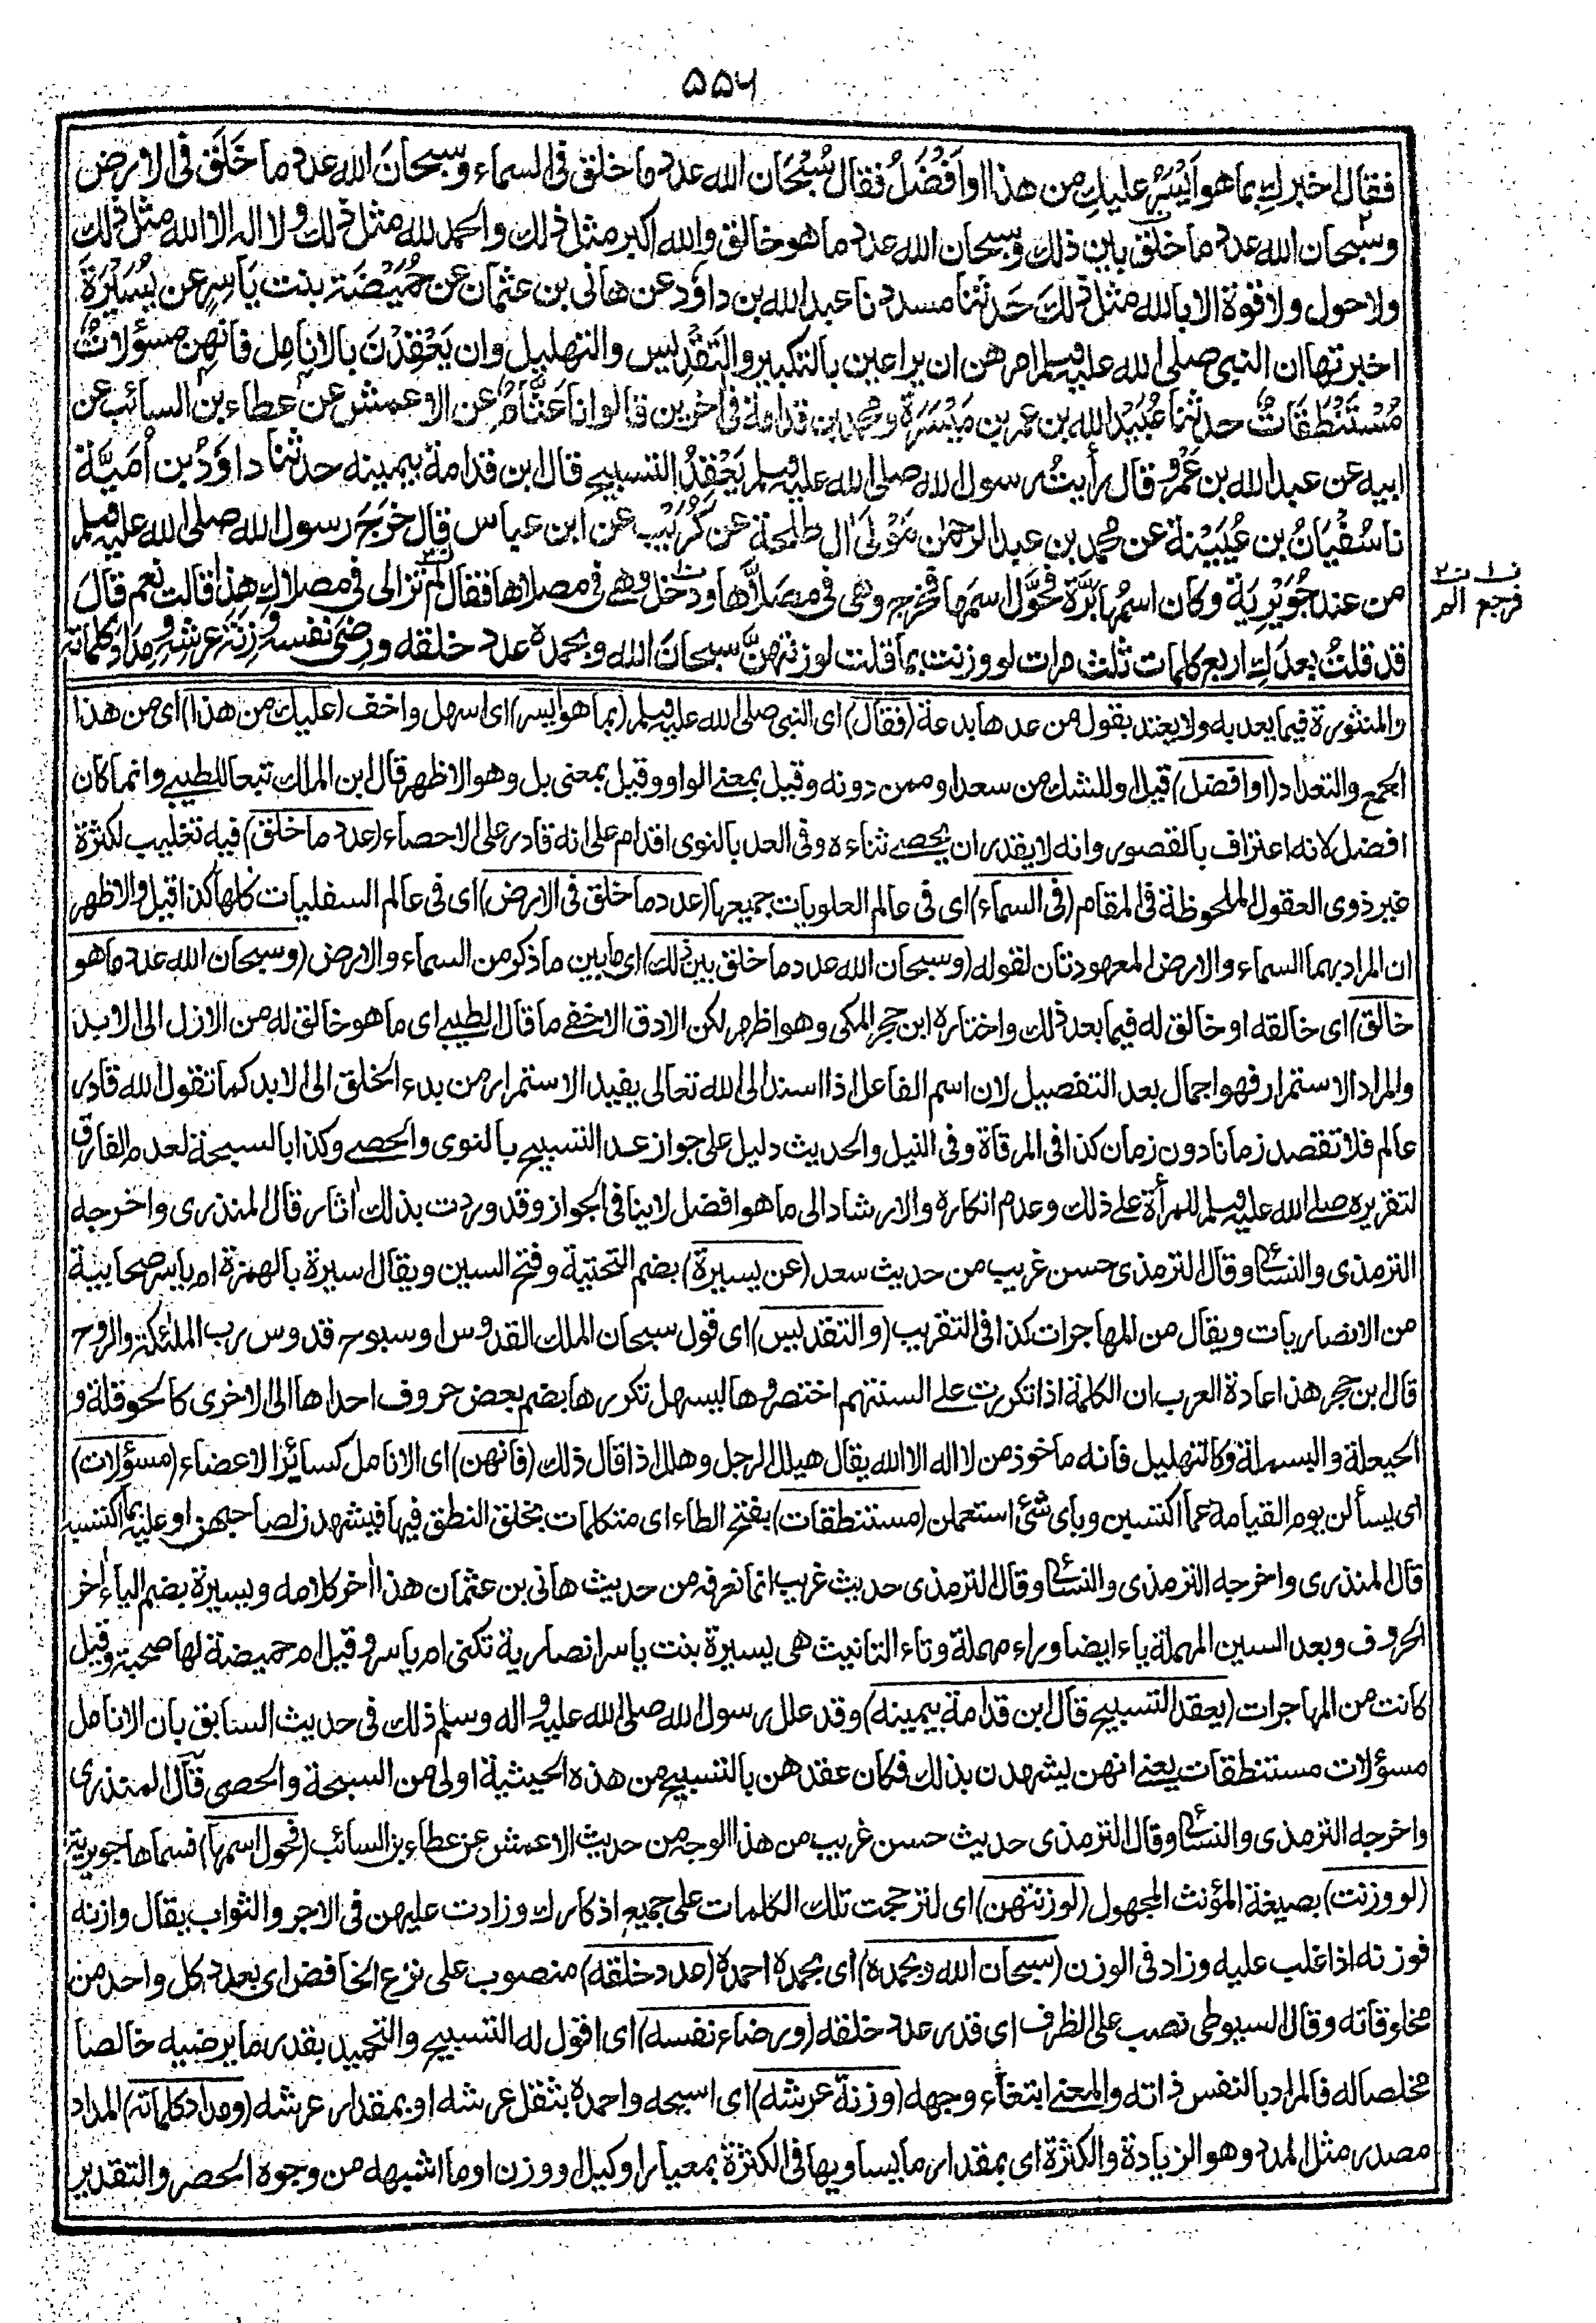 ۵۵۶
فقال اخبرك بما هو اَيْسَرُ عليكِ من هذا او اَفْضَلُ فقال سُبْحَان الله عدد ما خلق فى السماء وسبحانَ الله عدد ما خَلَقَ فى الارض
وسبحان الله عدد ما خلق بين ذلك وسبحان الله عدد ما هو خالق والله اكبر مثل ذلك والحمد لله مثل ذلك ولا اله الا الله مثل ذلك
ولا حول ولا قوة الا بالله مثل ذلك حَدثنا مسدد نا عبد الله بن داود عن هانى بن عثمان عن حُمَيْضَة بنت ياسرٍ عن يُسَيْرَةَ
اخبرتها ان النبى صلى الله عليه وسلم امرهن ان يراعين بالتكبير والتَقْدِيس والتهليل وان يَعْقِدْنَ بالانامِل فانهن مسؤلاتٌ
مُسْتَنْطَقَاتٌ حدثنا عُبَيْد الله بن عمر بن مَيْسَرَةَ ومحمد بن قدامة فى اٰخرين قالوا نا عَثَّامٌ عن الاعمش عن عطاء بن السائب عن
ابيه عن عبد الله بن عَمْرو قال رأيتُ رسول الله صلى الله عليه وسلم يَعْقِدُ التسبيح قال ابن قدامة بيمينه حدثنا داوَدُ بن اُمَيَّة
نا سُفْيَانُ بن عُيَيْنة عن محمد بن عبد الرحمٰن مَوْلَى اٰل طلحة عن كُرَيْبٍ عن ابن عباس قال خَرَجَ رسول الله صلى الله عليه وسلم
من عند جُوَيْرِيَة وكان اسمُها بَرَّة فحَوَّل اسمها فخرج وهى فى مصَلاَّها ودخل وهى فى مصلاها فقال لم تزالى فى مصلاك هذا قالت نعم قال
فرجع الم
قد قلتُ بعدَكِ اربع كلمات ثلث مرات لو وزنت بما قلت لوزنتهنَّ سبحانَ الله وبحمده عدد خلقه ورضى نفسه وزِنَةَ عرشه ومدادَ كلماته
والمنثورة فيما يعد به ولا يعتد بقول من عدها بدعة (فقال) اى النبى صلى الله عليه وسلم (بما هو ايسر) اى اسهل واخف (عليك من هذا) اى من هذا
الجمع والتعداد (او افضل) قيل او للشك من سعد او ممن دونه وقيل بمعنى الواو وقيل بمعنى بل وهو الاظهر قال ابن الملك تبعا للطيبى وانما كان
افضل لانه اعتراف بالقصور وانه لا يقدر ان يحصى ثناءه وفى العد بالنوى اقدام على انه قادر على الاحصاء (عدد ما خلق) فيه تغليب لكثرة
غير ذوى العقول الملحوظة فى المقام (فى السماء) اى فى عالم العلويات جميعها (عدد ما خلق فى الارض) اى فى عالم السفليات كلها كذا قيل والاظهر
ان المراد بهما السماء والارض المعهودتان لقوله (وسبحان الله عدد ما خلق بين ذلك) اى ما بين ما ذكر من السماء والارض (وسبحان الله عدد ما هو
خالق) اى خالقه او خالق له فيما بعد ذلك واختاره ابن حجر المكى وهو اظهر لكن الادق الاخفى ما قال الطيبى اى ما هو خالق له من الازل الى الابد
والمراد الاستمرار فهو اجمال بعد التفصيل لان اسم الفاعل اذا اسند الى الله تعالى يفيد الاستمرار من بدء الخلق الى الابد كما تقول الله قادر
عالم فلا تقصد زمانا دون زمان كذا فى المرقاة وفى النيل والحديث دليل على جواز عد التسبيح بالنوى والحصى وكذا بالسبحة لعدم الفارق
لتقريره صلى الله عليه وسلم للمرأة على ذلك وعدم انكاره والارشاد الى ما هو افضل لا ينافى الجواز وقد وردت بذلك اٰثار قال المنذرى واخرجه
الترمذى والنسائى وقال الترمذى حسن غريب من حديث سعد (عن يسيرة) بضم التحتية وفتح السين ويقال اسيرة بالهمزة ام ياسر صحابية
من الانصاريات ويقال من المهاجرات كذا فى التقريب (والتقديس) اى قول سبحان الملك القدوس او سبوح قدوس رب الملئكة والروح
قال ابن حجر هذا عادة العرب ان الكلمة اذا تكررت على السنتهم اختصروها ليسهل تكررها بضم بعض حروف احداها الى الاخرى كالحوقلة و
الحيعلة والبسملة وكالتهليل فانه ماخوذ من لا اله الا الله يقال هيلل الرجل وهلل اذا قال ذلك (فانهن) اى الانامل كسائر الاعضاء (مسؤلات)
اى يسألن يوم القيامة عما اكتسبن وباى شئ استعملن (مستنطقات) بفتح الطاء اى متكلمات بخلق النطق فيها فيشهدن لصاحبهن او عليه بما اكتسبه
قال المنذرى واخرجه الترمذى والنسائى وقال الترمذى حديث غريب انما نعرفه من حديث هانى بن عثمان هذا اٰخر كلامه ويسيرة بضم الياء اٰخر
الحروف وبعد السين المهملة ياء ايضا وراء مهملة وتاء التانيث هى يسيرة بنت ياسر انصارية تكنى ام ياسر وقيل ام حميضة لها صحبة وقيل
كانت من المهاجرات (يعقد التسبيح قال ابن قدامة بيمينه) وقد علل رسول الله صلى الله عليه واٰله وسلم ذلك فى حديث السابق بان الانامل
مسؤلات مستنطقات يعنى انهن يشهدن بذلك فكان عقدهن بالتسبيح من هذه الحيثية اولى من السبحة والحصى قال المنذرى
واخرجه الترمذى والنسائى وقال الترمذى حديث حسن غريب من هذا الوجه من حديث الاعمش عن عطاء بن السائب (فحول اسمها) فسماها جويرية
(لو وزنت) بصيغة المؤنث المجهول (لوزنتهن) اى لترجحت تلك الكلمات على جميع اذكارك وزادت عليهن فى الاجر والثواب يقال وازنه
فوزنه اذا غلب عليه وزاد فى الوزن (سبحان الله وبحمده) اى بحمده احمده (عدد خلقه) منصوب على نزع الخافض اى بعدد كل واحد من
مخلوقاته وقال السيوطى نصب على الظرف اى قدر عدد خلقه (ورضاء نفسه) اى اقول له التسبيح والتحميد بقدر ما يرضيه خالصا
مخلصا له فالمراد بالنفس ذاته والمعنى ابتغاء وجهه (وزنة عرشه) اى اسبحه واحمده بثقل عرشه او بمقدار عرشه (ومداد كلماته) المداد
مصدر مثل المدد وهو الزيادة والكثرة اى بمقدار ما يساويها فى الكثرة بمعيار او كيل او وزن او ما اشبهه من وجوه الحصر والتقدير